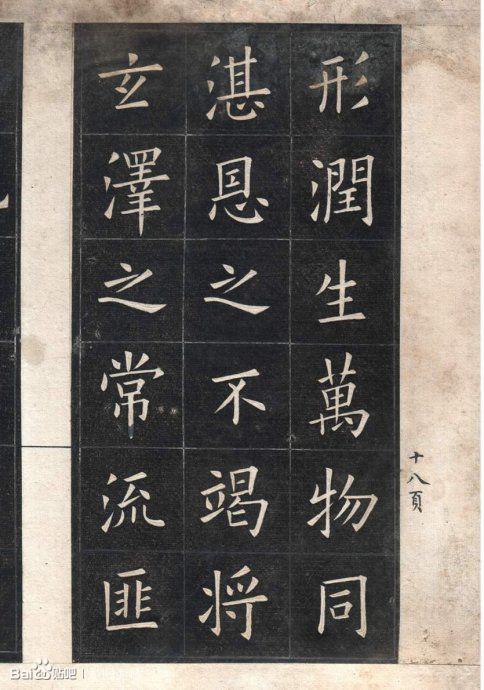 形潤生萬物同
湛恩之不竭将
玄澤之常流匪
十八頁
Bai贴吧